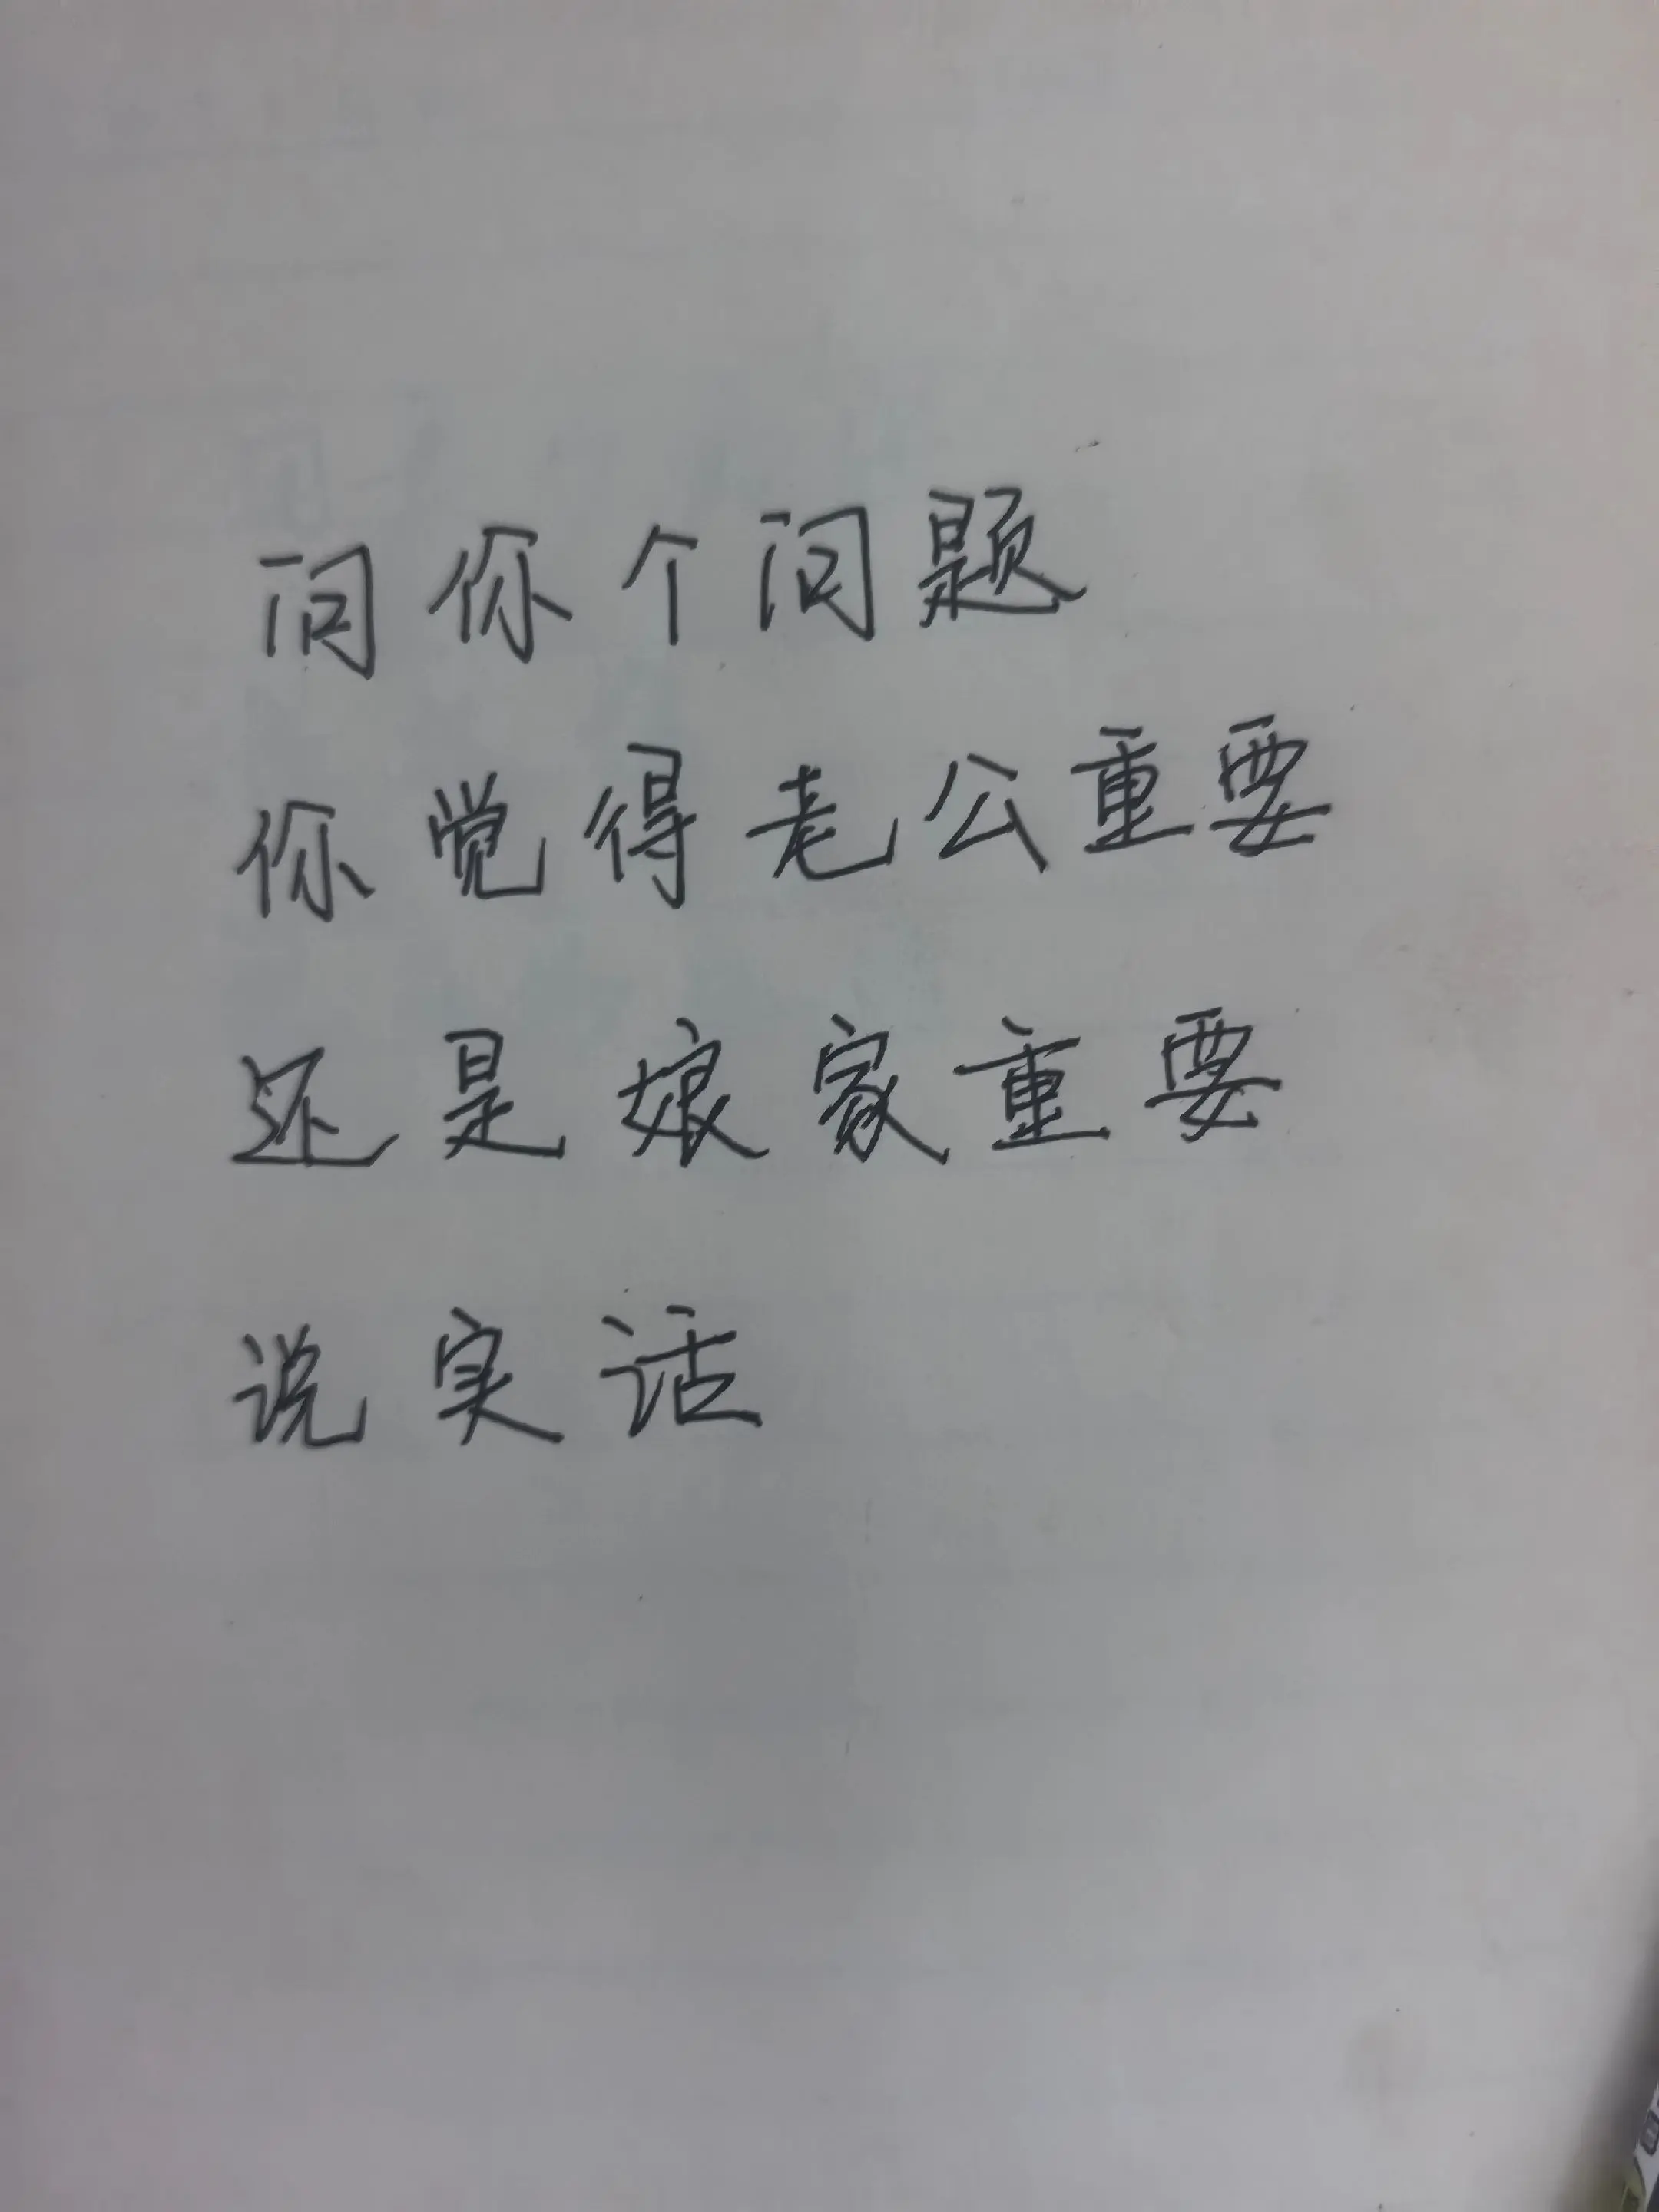 问你个问题
你觉得老公重要
还是娘家重要
说实话